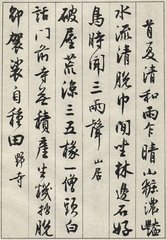 首夏清和雨乍晴山濃
水流清脱巾閒坐林邊石好
鳥時聞三兩聲 山居
破屋荒涼三五椽一僧頭白
話門前寺産生機拙脱
卻袈裟自種田 野寺